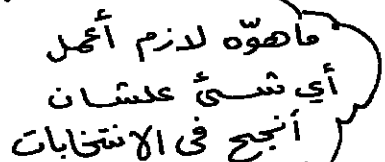 ماهوّه لازم أعمل
أي شئ علشان
أنجح فى الانتخابات